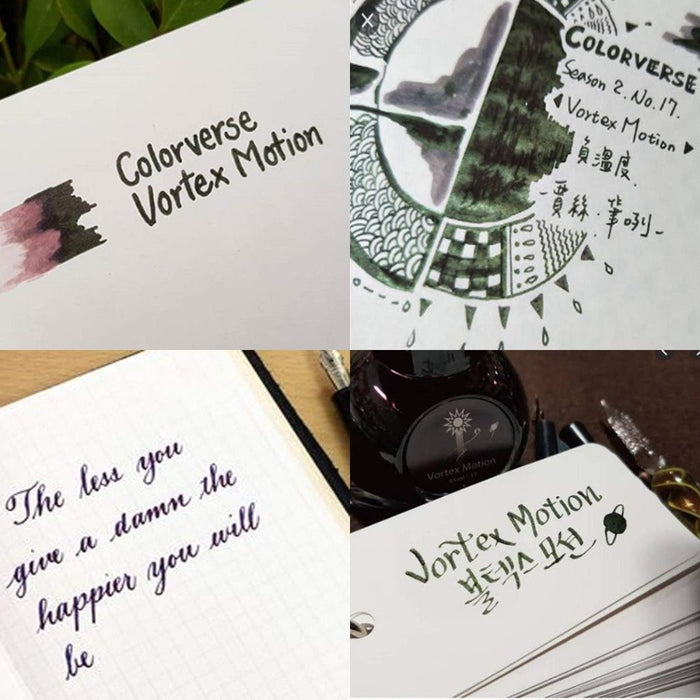 Colorverse
Vortex Motion
COLORVERSE
Season 2. No.17.
Vortex Motion
負溫度.
-賈絲.筆咧-
The less you
give a damn the
happier you will
be
Vortex Motion
Vortex Motion
볼텍스 모션